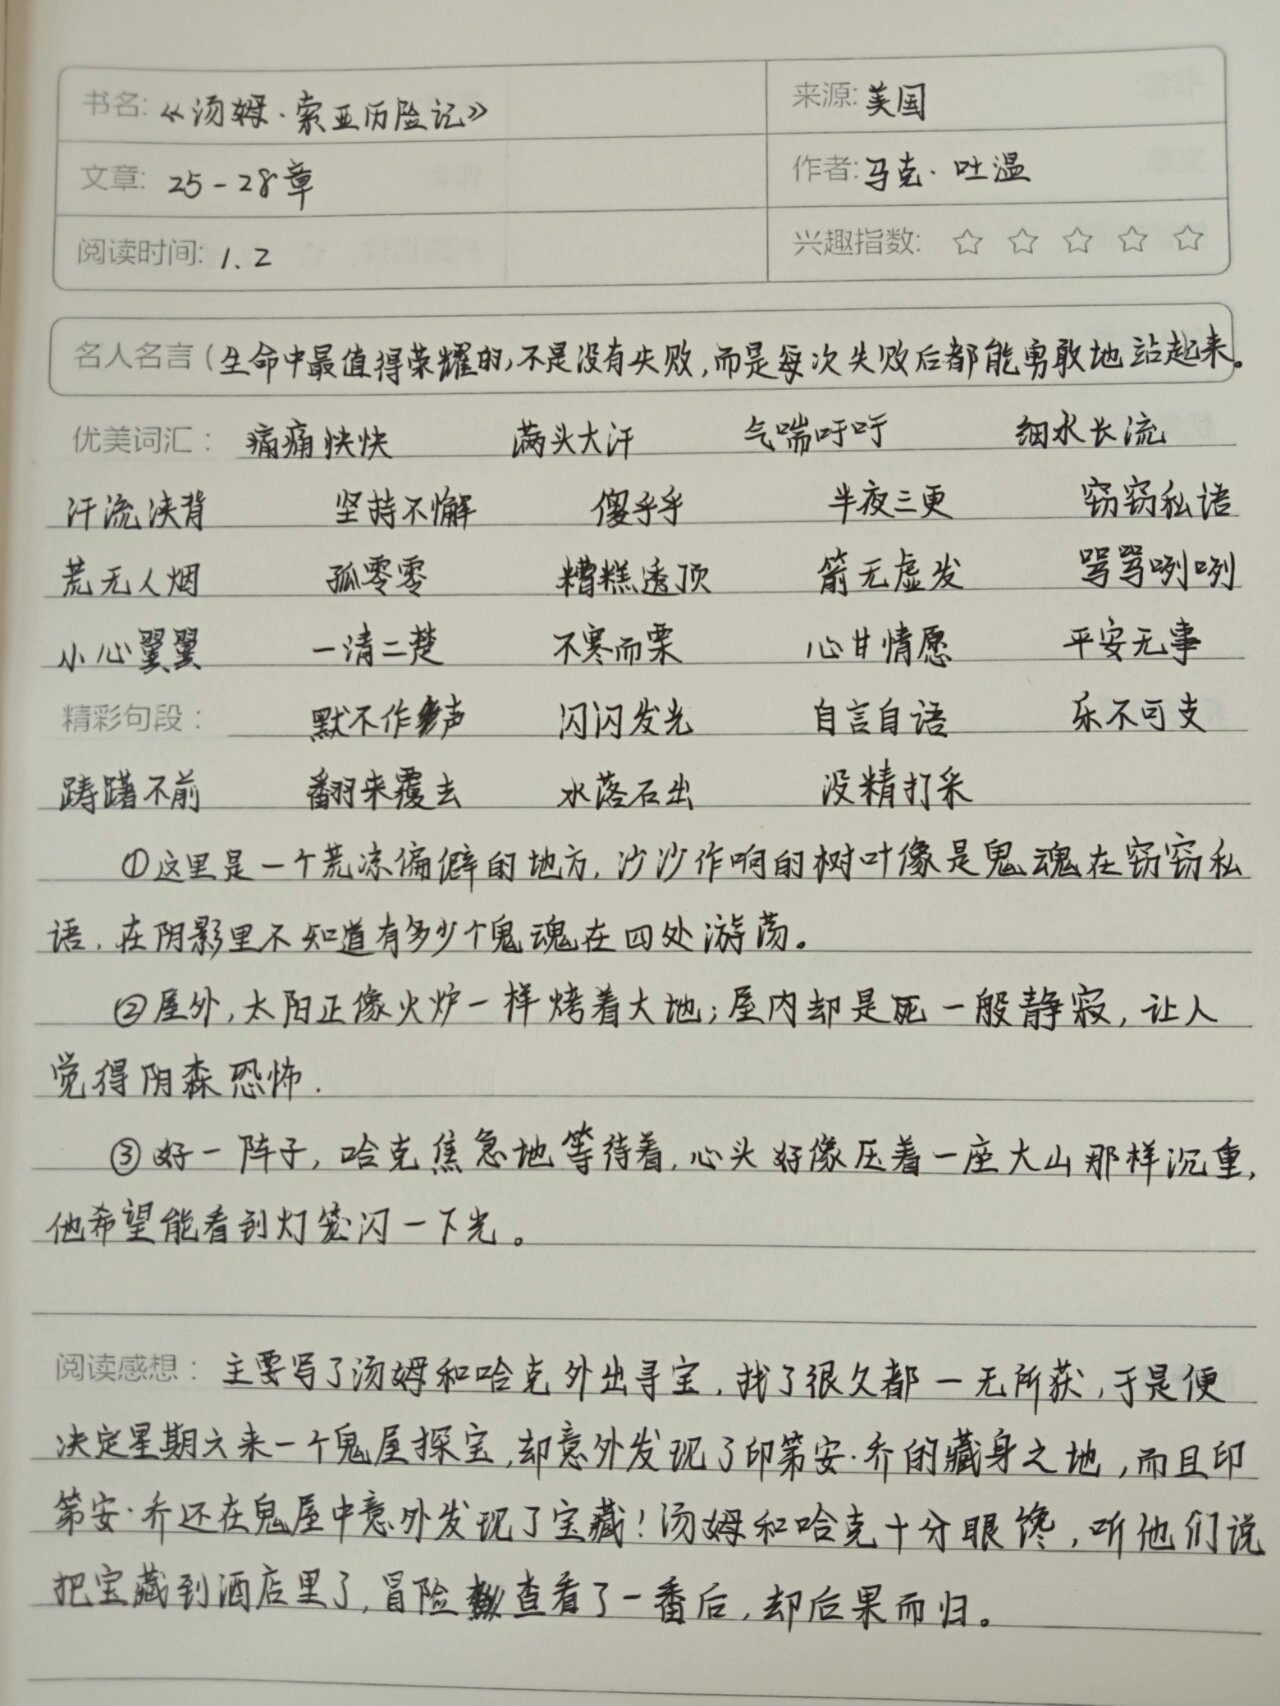 书名: 《汤姆·索亚历险记》 来源: 美国
文章: 25-28章 作者: 马克·吐温
阅读时间: 1.2 兴趣指数: ☆ ☆ ☆ ☆ ☆
名人名言 (生命中最值得荣耀的,不是没有失败,而是每次失败后都能勇敢地站起来。
优美词汇: 痛痛快快 满头大汗 气喘吁吁 细水长流
汗流浃背 坚持不懈 傻乎乎 半夜三更 窃窃私语
荒无人烟 孤零零 糟糕透顶 箭无虚发 骂骂咧咧
小心翼翼 一清二楚 不寒而栗 心甘情愿 平安无事
精彩句段: 默不作声 闪闪发光 自言自语 乐不可支
踌躇不前 翻来覆去 水落石出 没精打采
①这里是一个荒凉偏僻的地方,沙沙作响的树叶像是鬼魂在窃窃私
语,在阴影里不知道有多少个鬼魂在四处游荡。
②屋外,太阳正像火炉一样烤着大地;屋内却是死一般静寂,让人
觉得阴森恐怖.
③好一阵子,哈克焦急地等待着,心头好像压着一座大山那样沉重,
他希望能看到灯笼闪一下光。
阅读感想: 主要写了汤姆和哈克外出寻宝,找了很久都一无所获,于是便
决定星期六来一个鬼屋探宝,却意外发现了印第安·乔的藏身之地,而且印
第安·乔还在鬼屋中意外发现了宝藏!汤姆和哈克十分眼馋,听他们说
把宝藏到酒店里了,冒险查看了一番后,却后果而归。